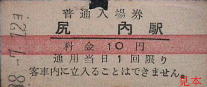 普通入場券
尻内駅
料金10円
通用当日1回限り
客車内に立入ることはできません。
見本